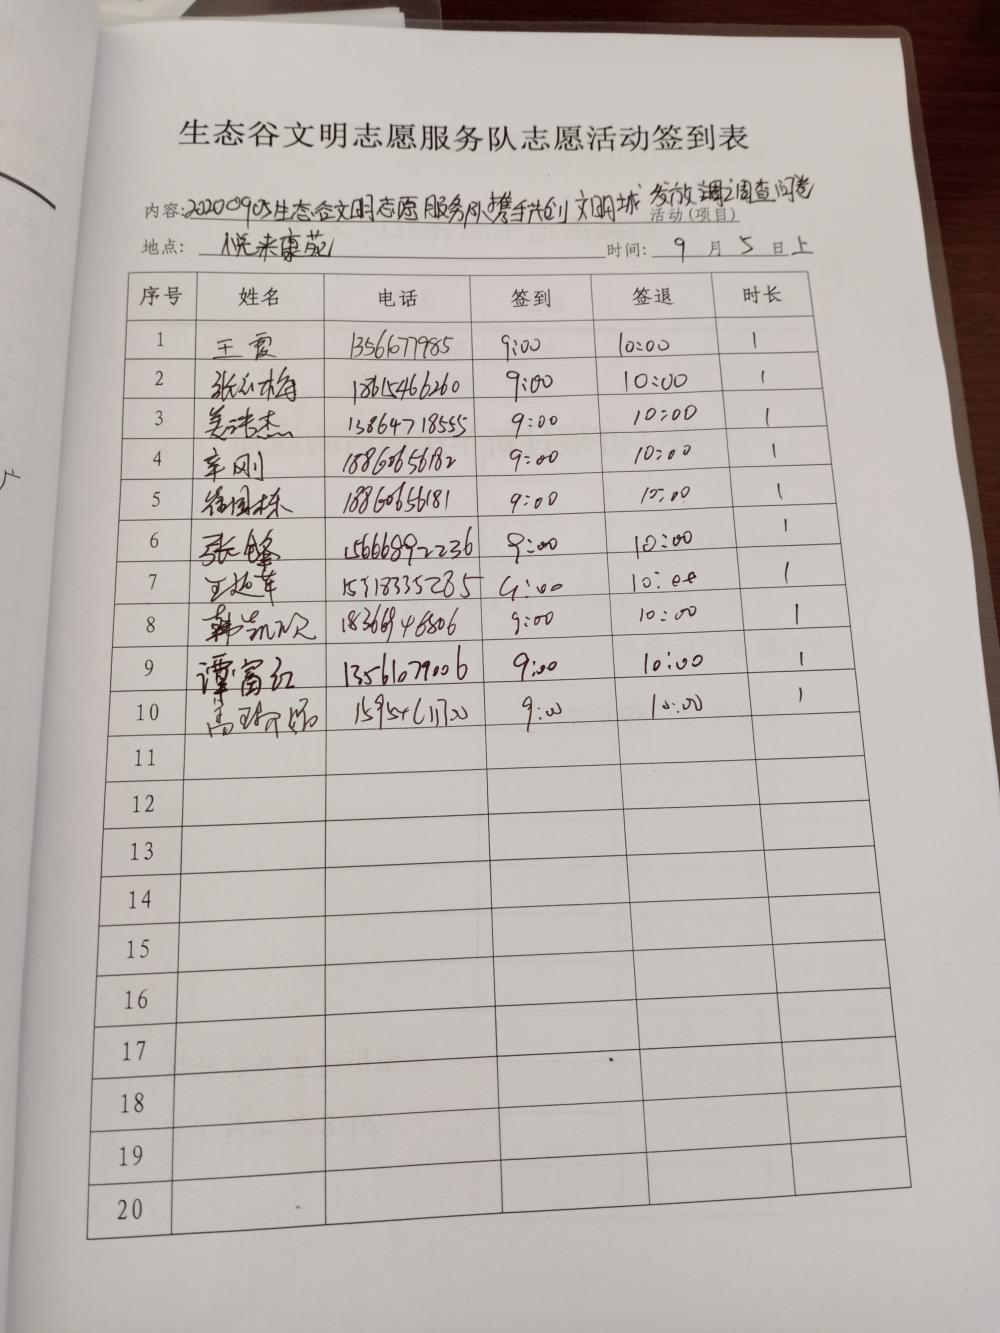 生态谷文明志愿服务队志愿活动签到表
内容:20200905生态谷文明志愿服务队携手共创文明城 发放调查问卷 活动(项目)
地点: 悦来康苑 时间: 9 月 5 日上
序号 姓名 电话 签到 签退 时长
1 王霞 13561677985 9:00 10:00 1
2 18615466260 9:00 10:00 1
3 姜洪杰 13864718555 9:00 10:00 1
4 辛刚 18860656182 9:00 10:00 1
5 18860656181 9:00 10:00 1
6 张锋 15666892236 9:00 10:00 1
7 9:00 10:00 1
8 韩凯欣 18366946806 9:00 10:00 1
9 谭富红 13561079006 9:00 10:00 1
10 9:00 10:00 1
11
12
13
14
15
16
17
18
19
20